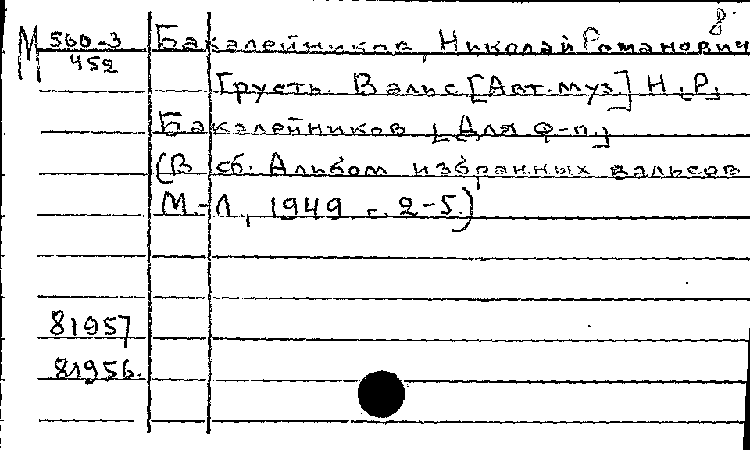 8.
М 560-3 Бакалейников, Николай Романович
452
Грусть. Вальс [Авт. муз.] Н.[Р.]
Бакалейников [Для ф-п.]
(В сб. Альбом избранных вальсов
М.-Л., 1949 с. 2-5.)
81957
81956.